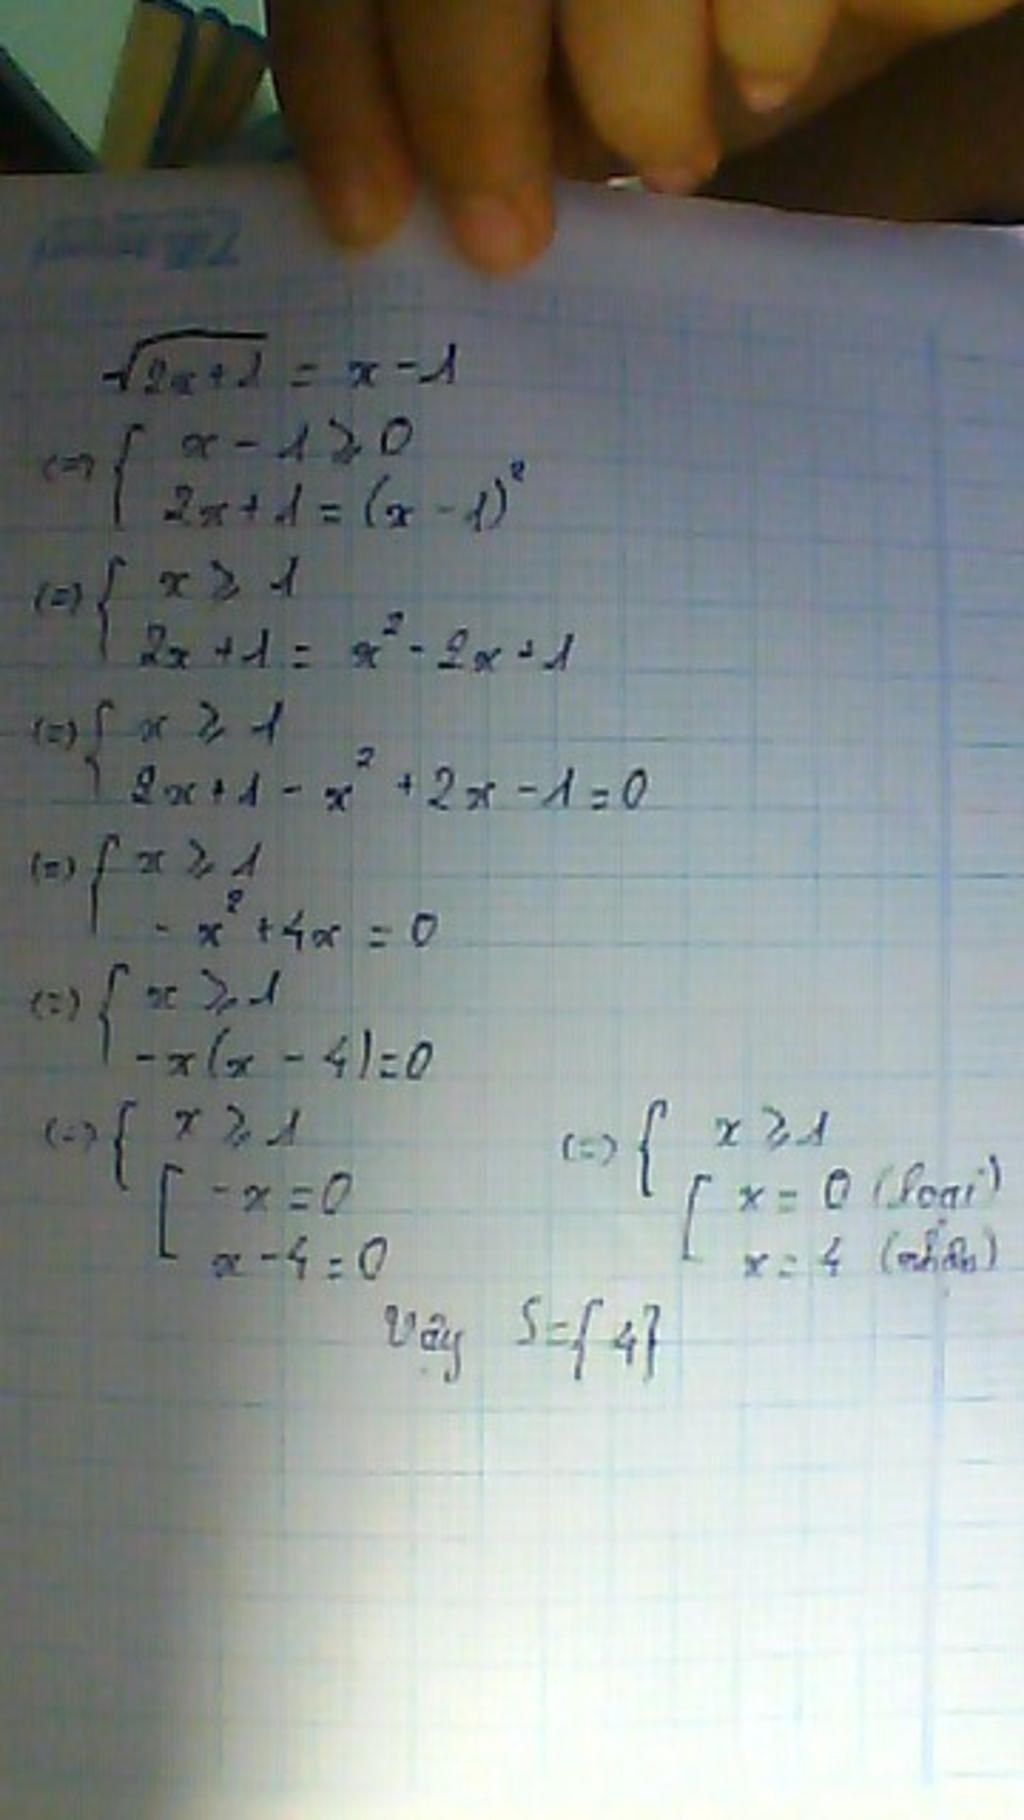 √(2x+1) = x-1
(=) { x - 1 ⩾ 0
2x+1 = (x-1)²
(=) { x ⩾ 1
2x+1 = x² - 2x + 1
(=) { x ⩾ 1
2x+1 - x² + 2x - 1 = 0
(=) { x ⩾ 1
- x² + 4x = 0
(=) { x ⩾ 1
-x(x - 4) = 0
(=) { x ⩾ 1 (=) { x ⩾ 1
[ -x = 0 [ x = 0 (loại)
x - 4 = 0 x = 4 (nhận)
Vậy S = {4}